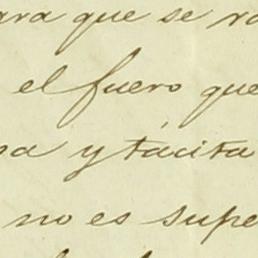 ara que se
el fuero que
y tácita
no es supe